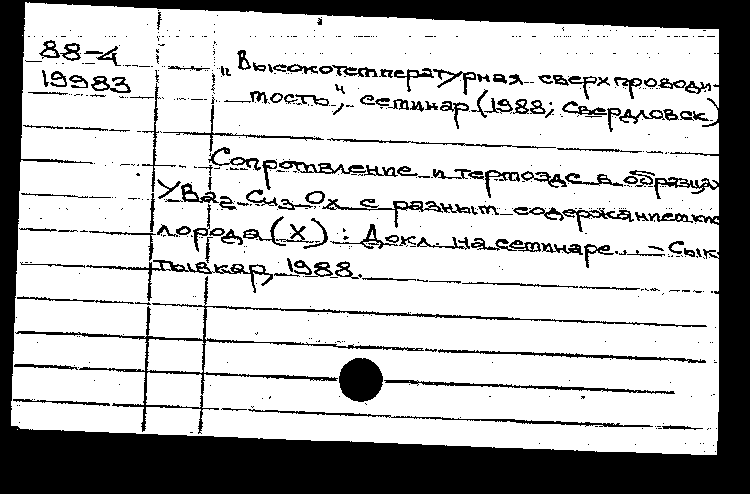 88-4
19983
„Высокотемпературная сверхпроводи-
мость", семинар (1988; Свердловск)
Сопротивление и термоэдс в образцах
YBa₂ Cu₃ Ox с разным содержанием кис-
лорода (X) : Докл. на семинаре... – Сык-
тывкар, 1988.